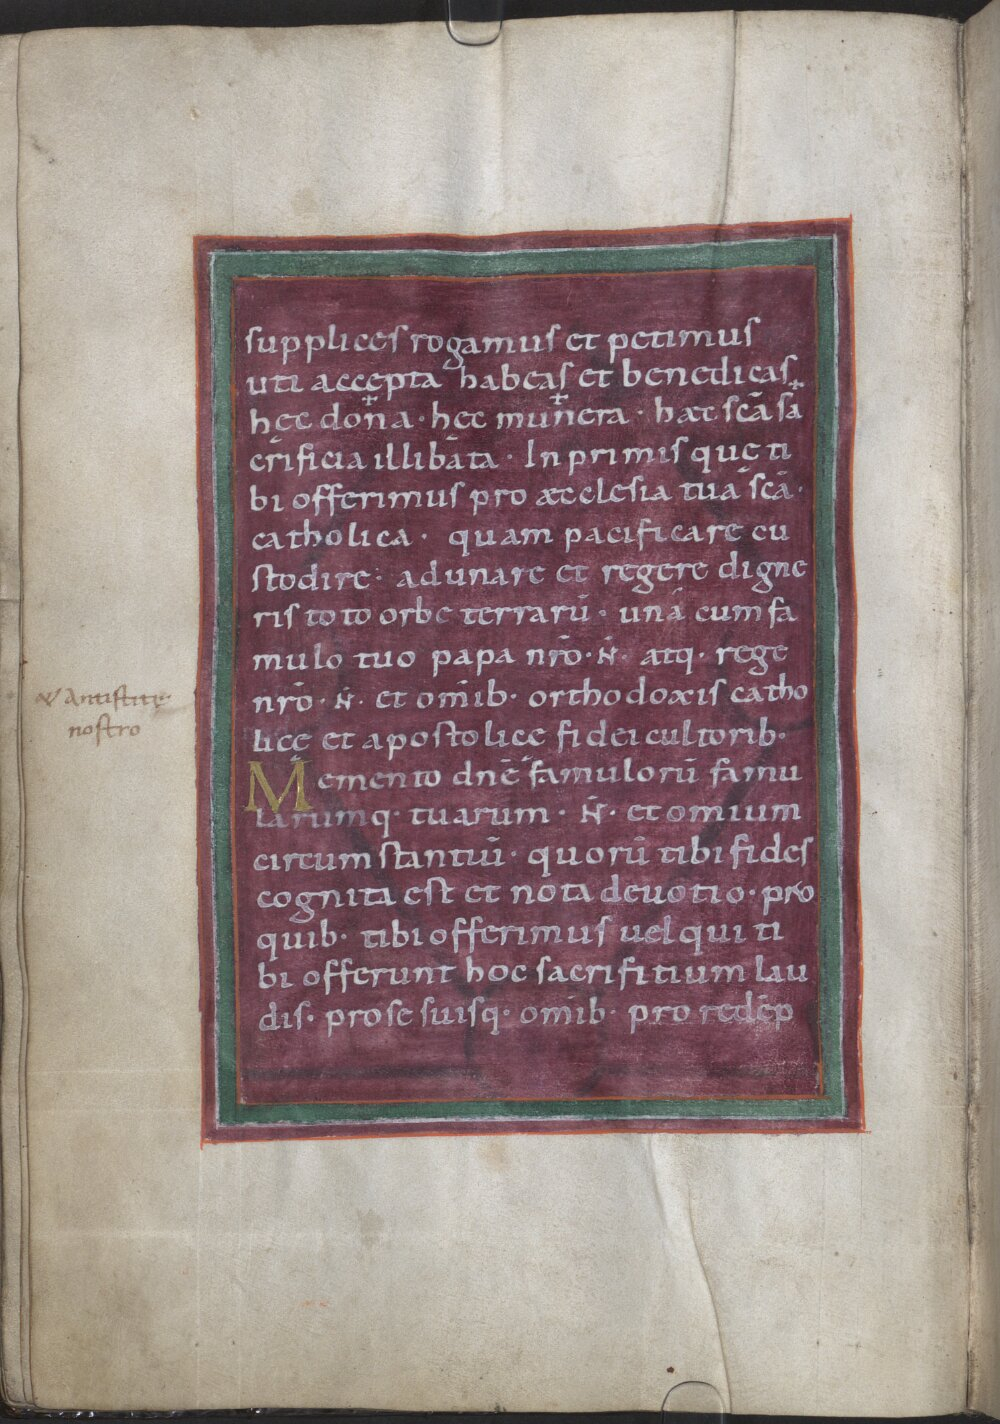 supplices rogamus et petimus
uti accepta habeas et benedicas
hęc dona · hęc munera · haec scā sa
crificia illibata · In primis quę ti
bi offerimus pro aecclesia tua scā ·
catholica · quam pacificare cu
stodire · adunare et regere digne
ris toto orbe terrarū · una cum fa
mulo tuo papa nrō · N̄ · atq · rege
nrō · N̄ · et om̄ib · orthodoxis catho
licę et apostolice fidei cultorib ·
Memento dnē famulorū famu
larumq · tuarum · N̄ · et omium
circumstantiū · quorū tibi fides
cognita est et nota deuotio · pro
quib · tibi offerimus uel qui ti
bi offerunt hoc sacrifitium lau
dis · pro se suisq · om̄ib · pro redēp
Antistite
nostro